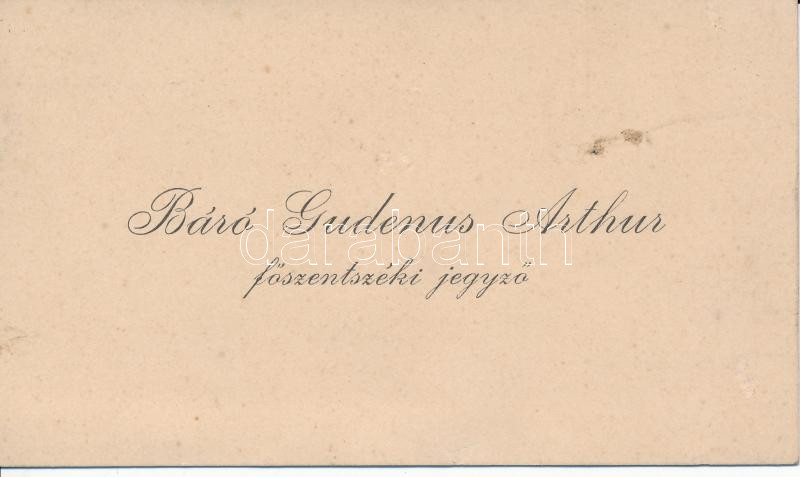 Báró Gudenus Arthur
darabanth
főszentszéki jegyző